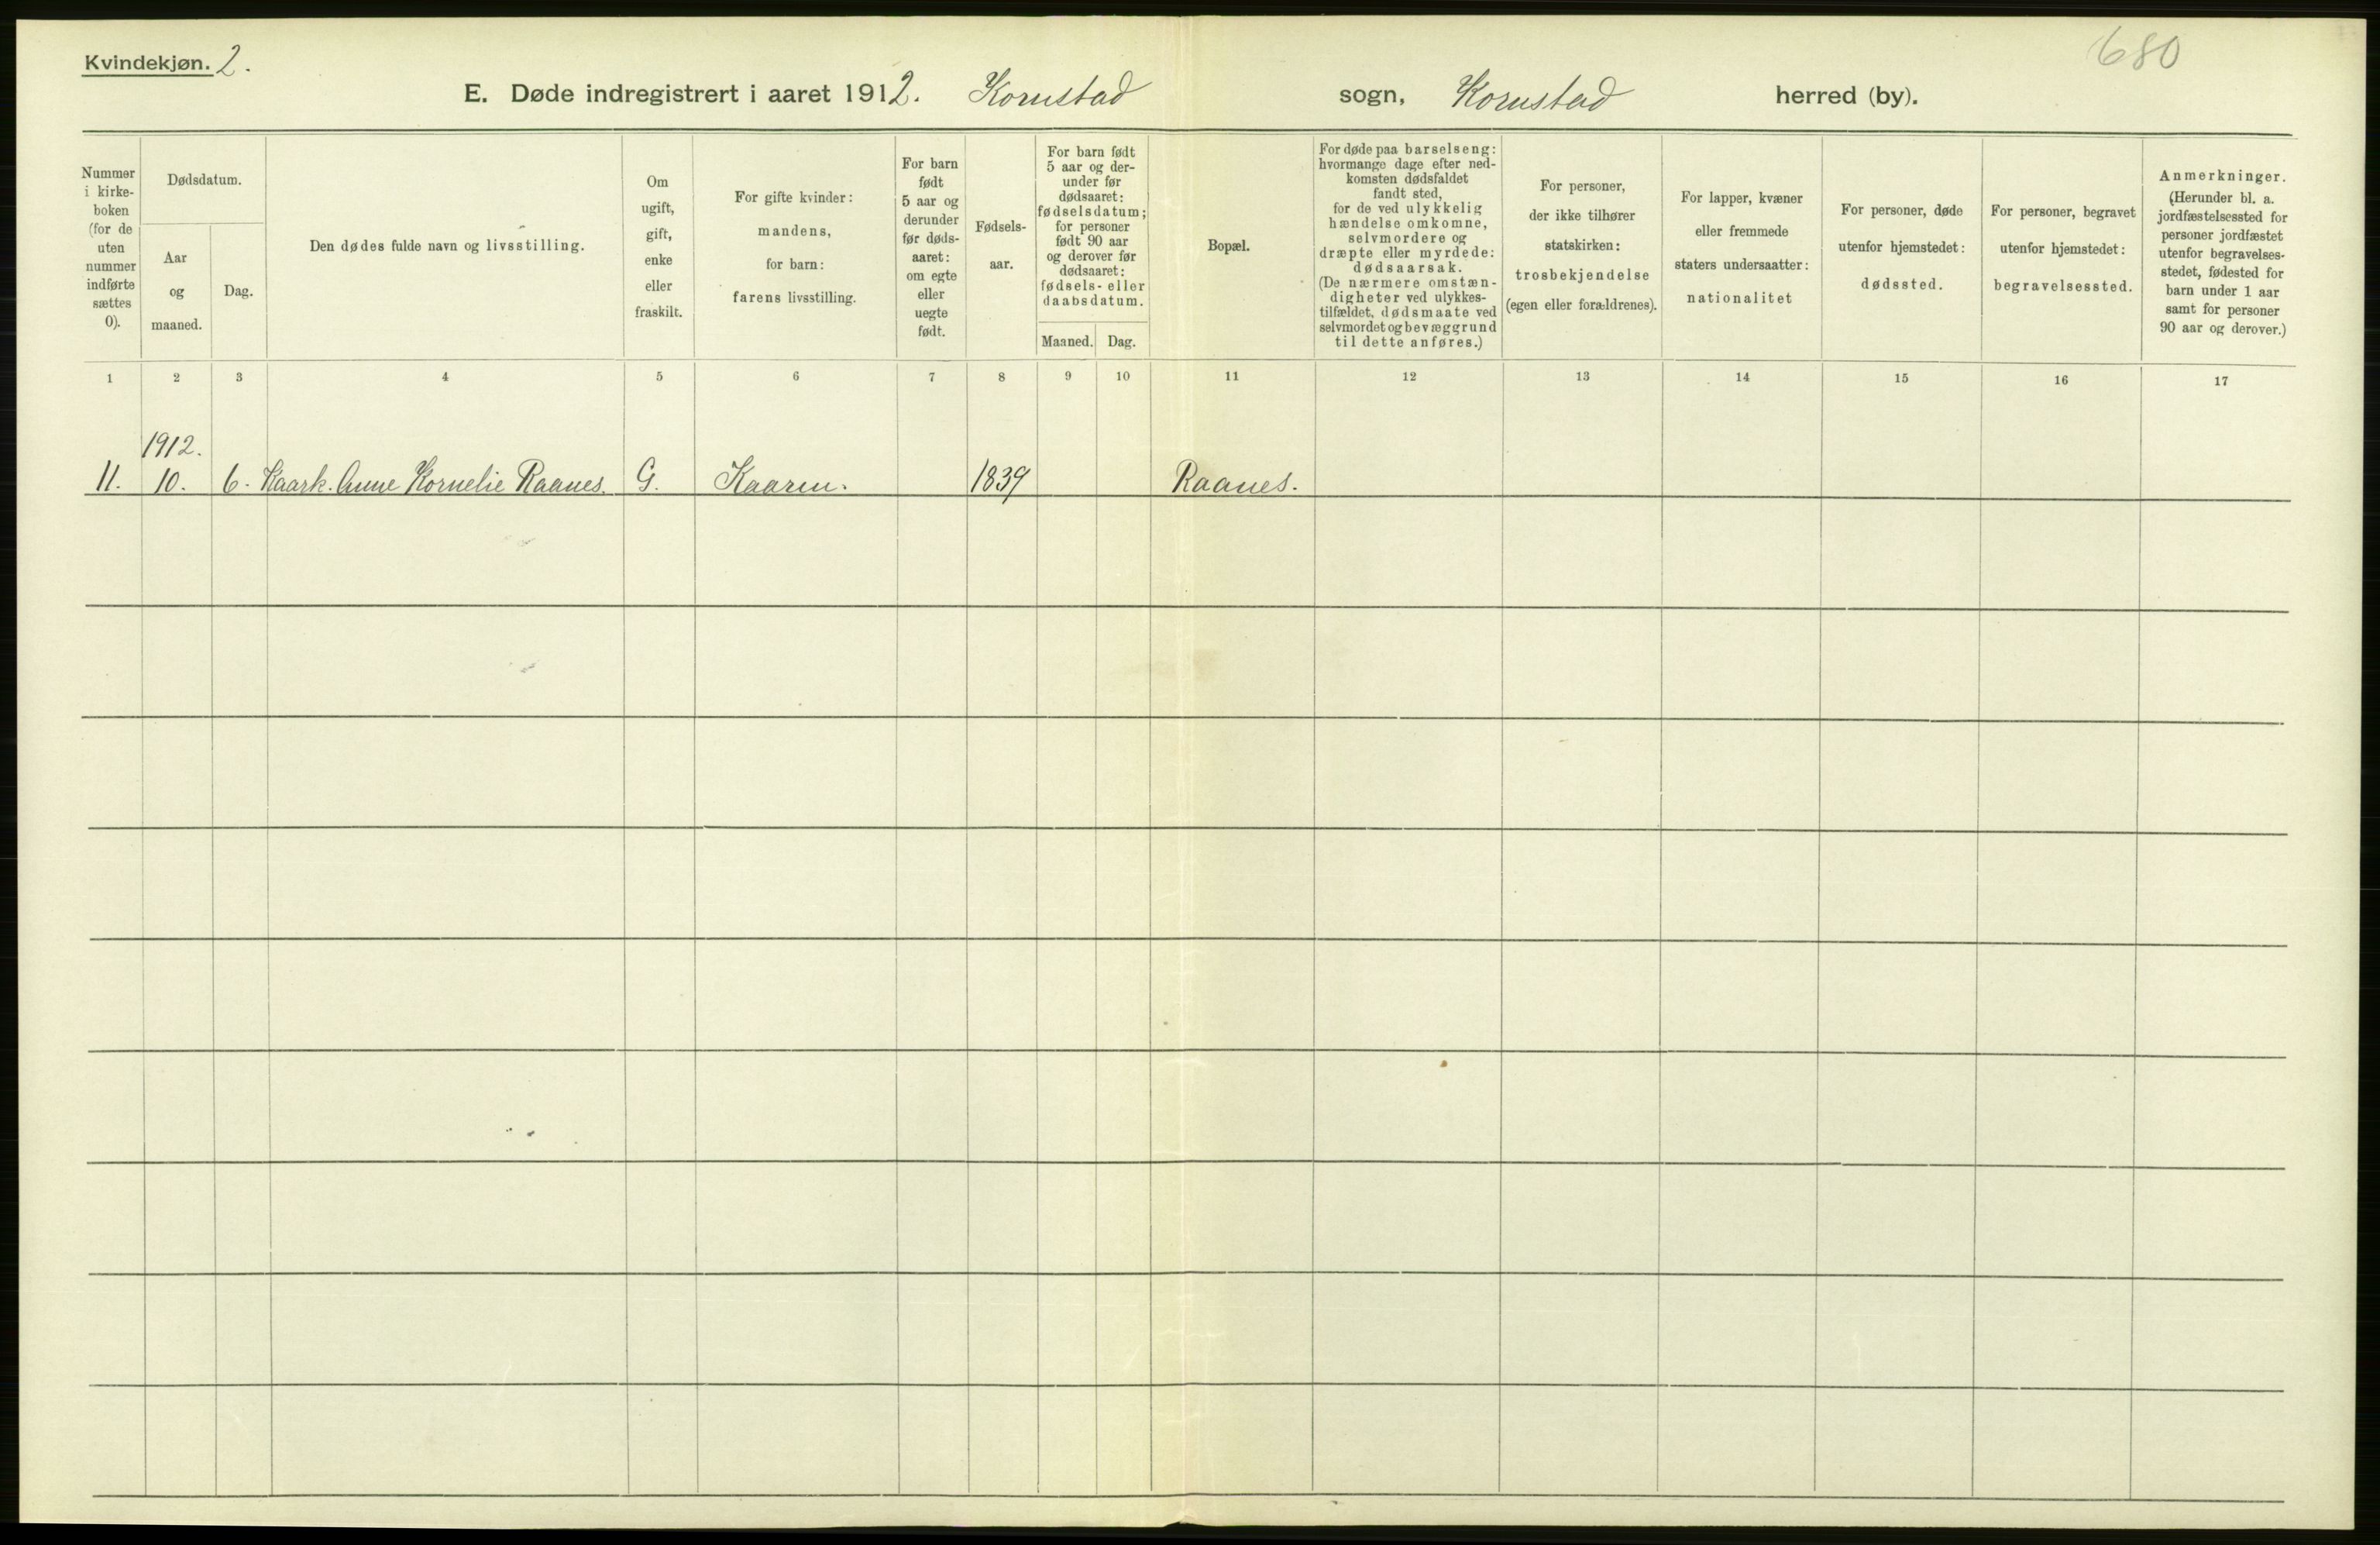 Kvindekjøn. 2.
680
E. Døde indregistrert i aaret 1912. Kornstad sogn, Kornstad herred (by).
Nummer
i kirke-
boken
(for de
uten
nummer
indførte
sættes
0).
Dødsdatum.
Aar
og
maaned.
Dag.
Den dødes fulde navn og livsstilling.
Om
ugift,
gift,
enke
eller
fraskilt.
For gifte kvinder:
mandens,
for barn:
farens livsstilling.
For barn
født
5 aar og
derunder
før døds-
aaret:
om egte
eller
uegte
født.
Fødsels-
aar.
For barn født
5 aar og der-
under før
dødsaaret:
fødselsdatum;
for personer
født 90 aar
og derover før
dødsaaret:
fødsels- eller
daabsdatum.
Maaned. Dag.
Bopæl.
For døde paa barselseng:
hvormange dage efter ned-
komsten dødsfaldet
fandt sted,
for de ved ulykkelig
hændelse omkomne,
selvmordere og
dræpte eller myrdede:
dødsaarsak.
(De nærmere omstæn-
digheter ved ulykkes-
tilfældet, dødsmaate ved
selvmordet og bevæggrund
til dette anføres.)
For personer,
der ikke tilhører
statskirken:
trosbekjendelse
(egen eller forældrenes).
For lapper, kvæner
eller fremmede
staters undersaatter:
nationalitet
For personer, døde
utenfor hjemstedet:
dødssted.
For personer, begravet
utenfor hjemstedet:
begravelsessted.
Anmerkninger.
(Herunder bl. a.
jordfæstelsessted for
personer jordfæstet
utenfor begravelses-
stedet, fødested for
barn under 1 aar
samt for personer
90 aar og derover.)
1 2 3 4 5 6 7 8 9 10 11 12 13 14 15 16 17
1912.
11. 10. 6. Kaark. Anne Kornelie Raanes. G. Kaarm. 1839 Raanes.